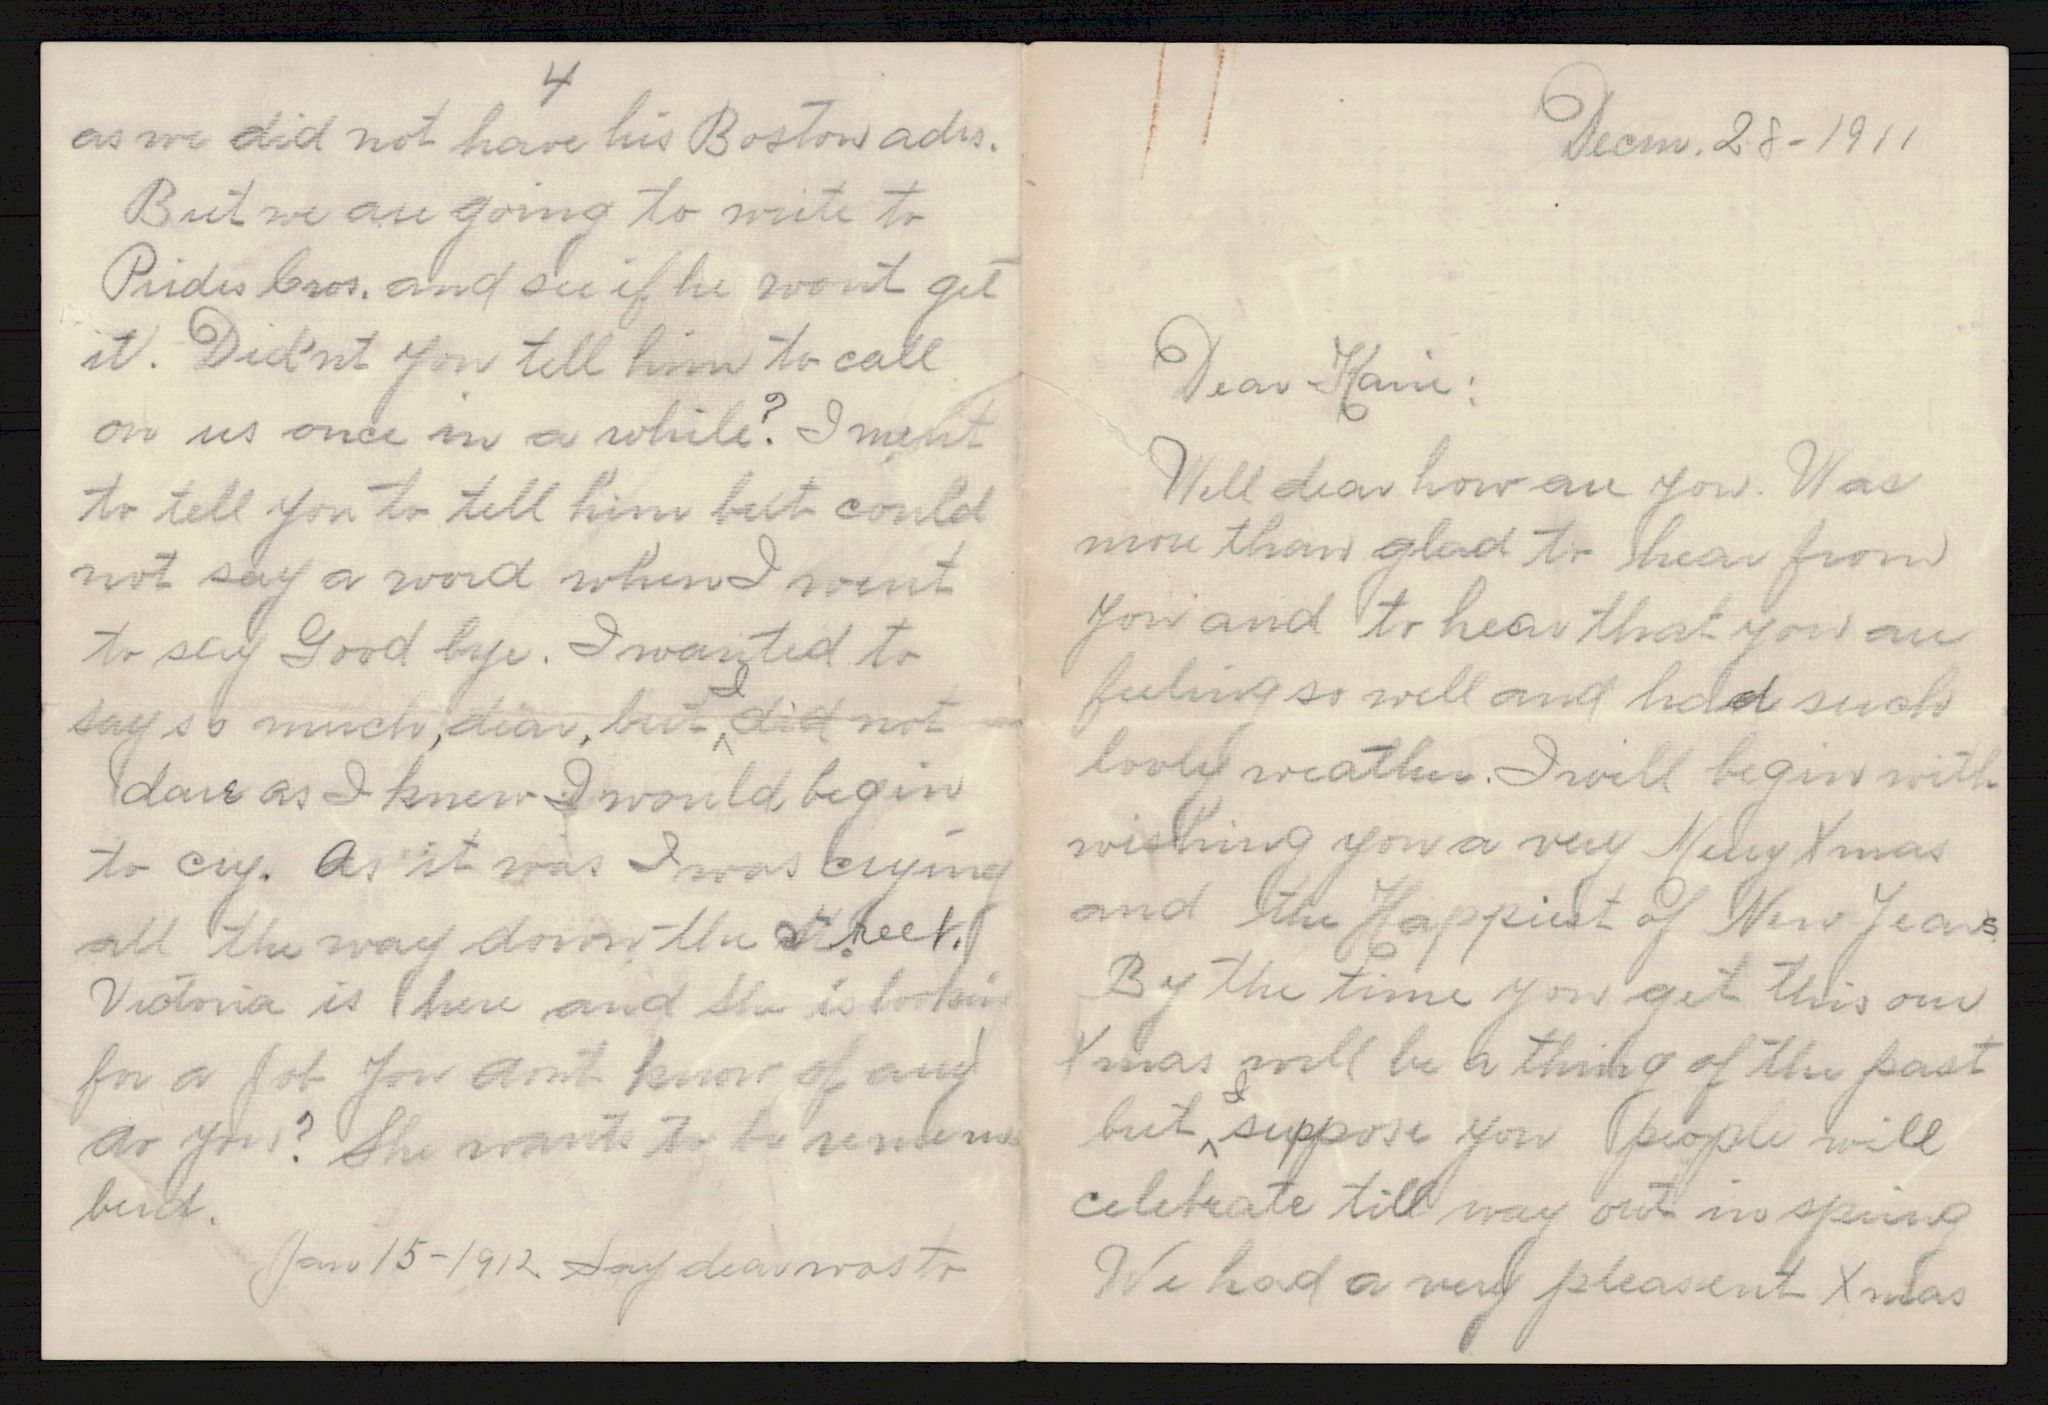 4
as we did not have his Boston adrs.
But we are going to write to
Prides bros. and see if he wont get
it. Did'nt you tell him to call
on us once in a while? I ment
to tell you to tell him but could
not say a word when I went
to say Good bye. I wanted to
say so much, dear, but I did not
dare as I knew I would begin
to cry. As it was I was crying
all the way down the street.
Victoria is here and she is lookin
for a job You dont know of any
do you? She wants to be remem
berd.
Jan 15-1912 Say dear was to
Decm. 28-1911
Dear :
Well dear how are you. Was
more than glad to hear from
you and to hear that you are
feeling so well and had such
lovly weather. I will begin with
wishing you a very Merry Xmas
and the Happiest of New Years
By the time you get this our
Xmas will be a thing of the past
but I suppose you people will
celebrate till way out in spring
We had a very pleasent Xmas